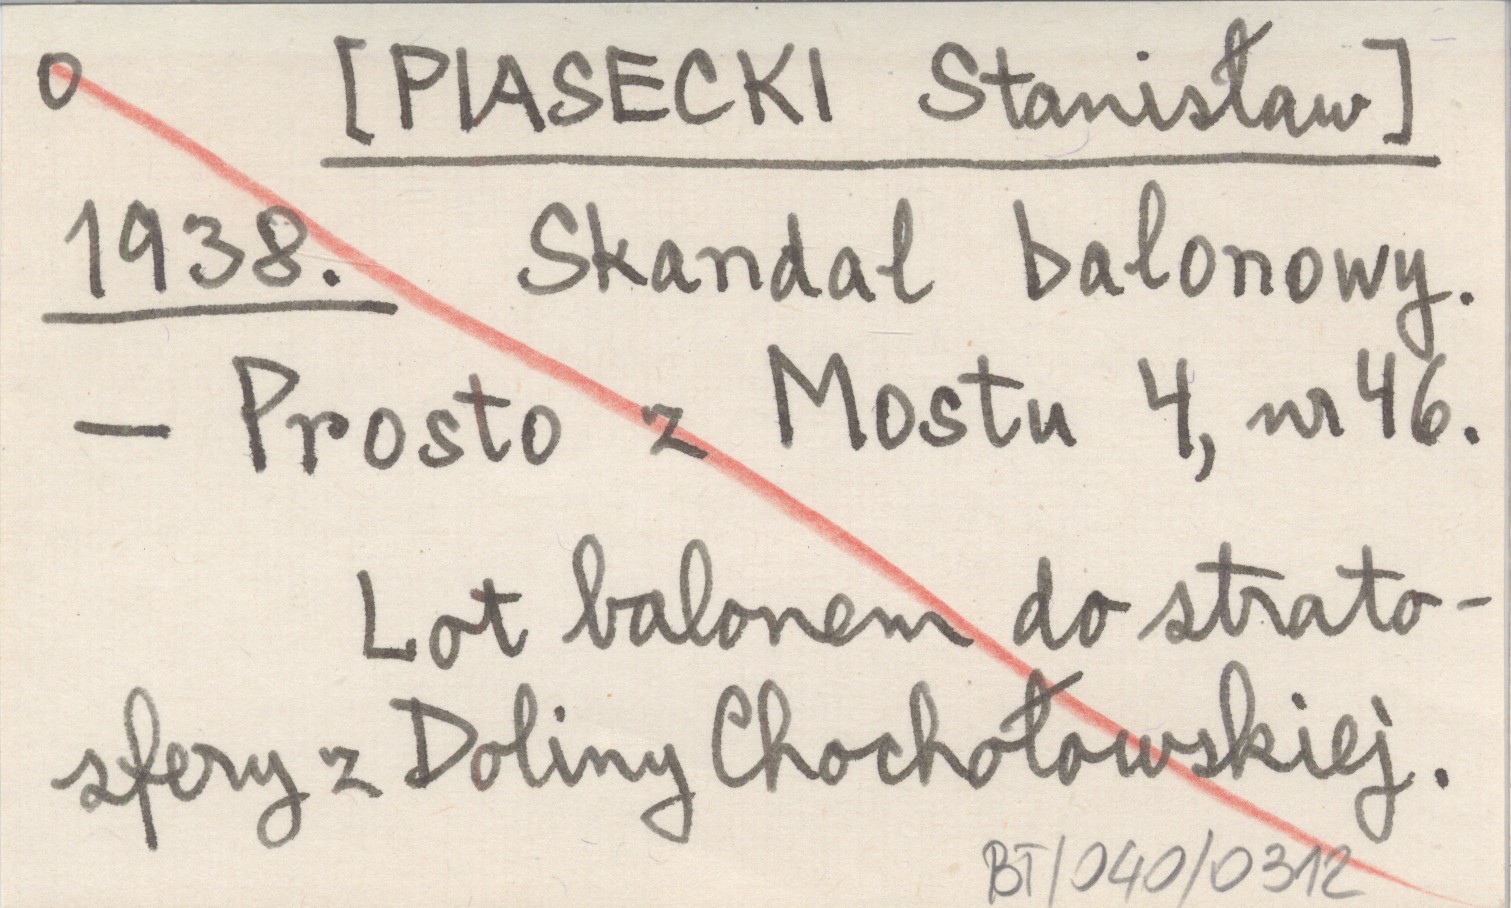 0 [PIASECKI Stanisław]
1938. Skandal balonowy.
— Prosto z Mostu 4, nr 46.
Lot balonem do strato-
sfery z Doliny Chochołowskiej.
BT/040/0312